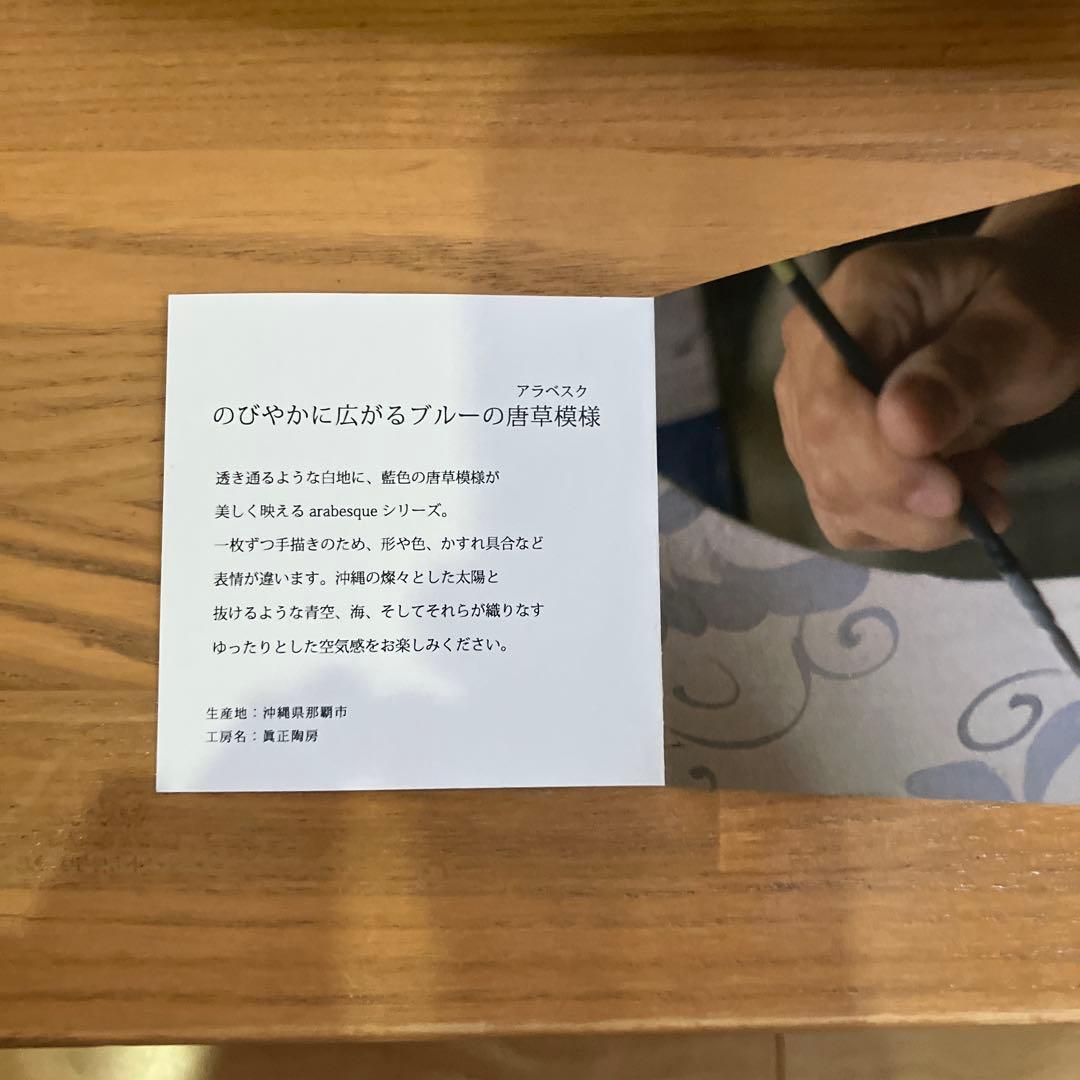 アラベスク
のびやかに広がるブルーの唐草模様
透き通るような白地に、藍色の唐草模様が
美しく映える arabesque シリーズ。
一枚ずつ手描きのため、形や色、かすれ具合など
表情が違います。沖縄の燦々とした太陽と
抜けるような青空、海、そしてそれらが織りなす
ゆったりとした空気感をお楽しみください。
生産地：沖縄県那覇市
工房名：眞正陶房